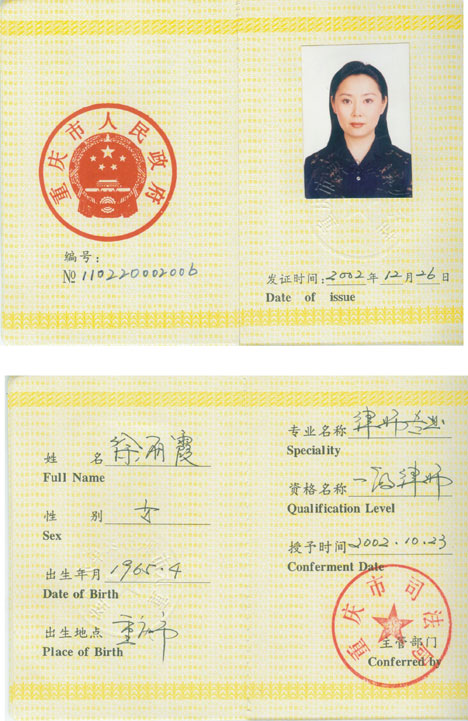 重庆市人民政府
编号:
№ 110220002006
发证时间: 2002 年 12 月 26 日
Date of issue
姓 名 徐丽霞
Full Name
性 别 女
Sex
出生年月 1965.4
Date of Birth
出生地点 重庆市
Place of Birth
专业名称 律师专业
Speciality
资格名称 一级律师
Qualification Level
授予时间 2002.10.23
Conferment Date
重庆市司法局
主管部门
Conferred by